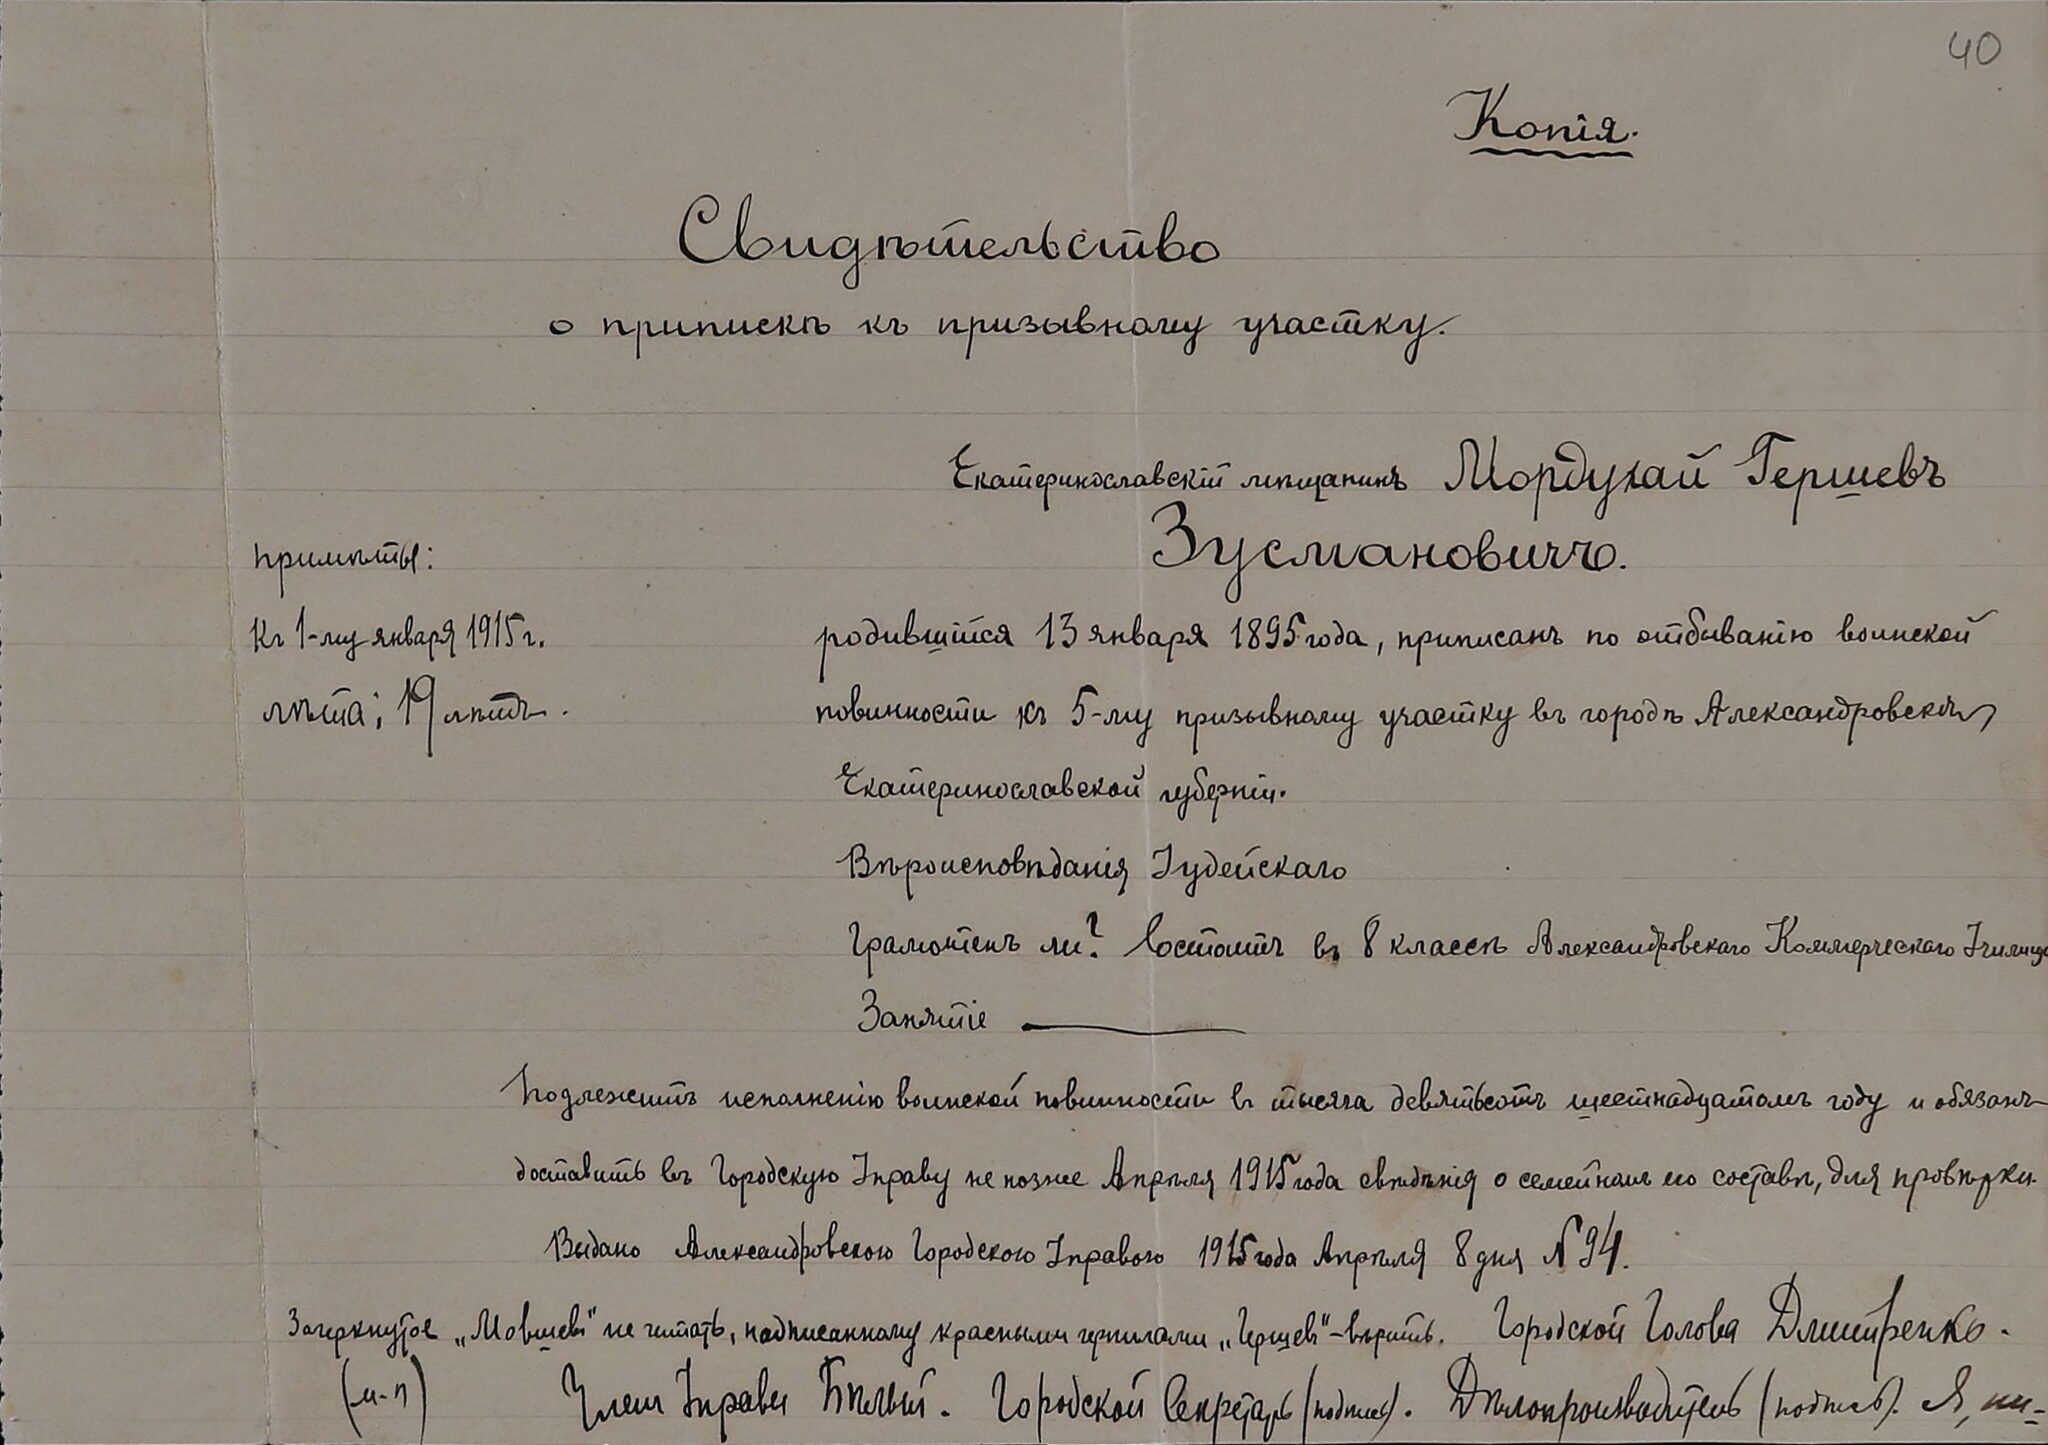 40
Копія.
Свидѣтельство
о припискѣ къ призывному участку.
Екатеринославскій мѣщанинъ Мордухай Гершевъ
Зусмановичъ.
Примѣты:
Къ 1-му января 1915 г.
лѣта: 19 лѣтъ.
родившійся 13 января 1895 года, приписанъ по отбыванію воинской
повинности къ 5-му призывному участку въ городѣ Александровскѣ,
Екатеринославской губерніи.
Вѣроисповѣданія Іудейскаго
Грамотенъ ли? Состоитъ въ 8 классѣ Александровскаго Коммерческаго Училища
Занятіе
Подлежитъ исполненію воинской повинности въ тысяча девятьсотъ шестнадцатомъ году и обязанъ
доставить въ Городскую Управу не позже Апрѣля 1915 года свѣдѣнія о семейномъ его составѣ, для провѣрки.
Выдано Александровскою Городскою Управою 1915 года Апрѣля 8 дня № 94.
Зачеркнутое „Мовшевъ" не читать, надписанному красными чернилами „Гершевъ" – вѣрить. Городской Голова Дмитренко.
(м.п) Членъ Управы Бѣлый. Городской Секретарь (подпись). Дѣлопроизводитель (подпись). Я, ни-